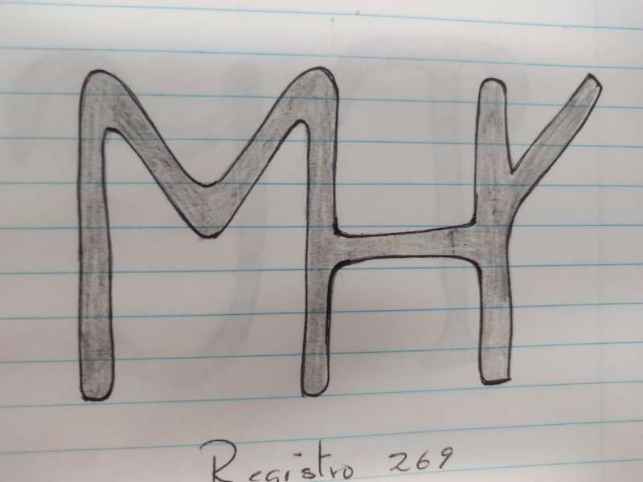 MHY
Registro 269